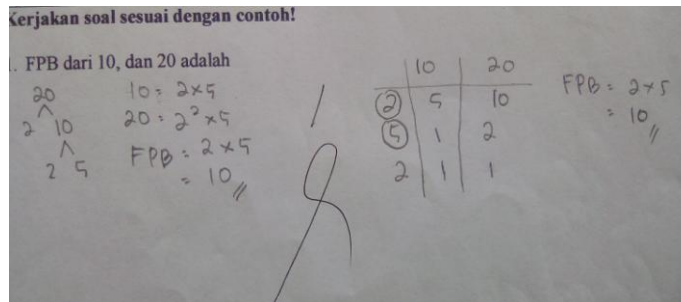 Kerjakan soal sesuai dengan contoh!
1. FPB dari 10, dan 20 adalah
20
2 10
2 5
10 = 2 × 5
20 = 2² × 5
FPB = 2 × 5
= 10 //
10 20
2 5 10
5 1 2
2 1 1
FPB = 2 × 5
= 10 //